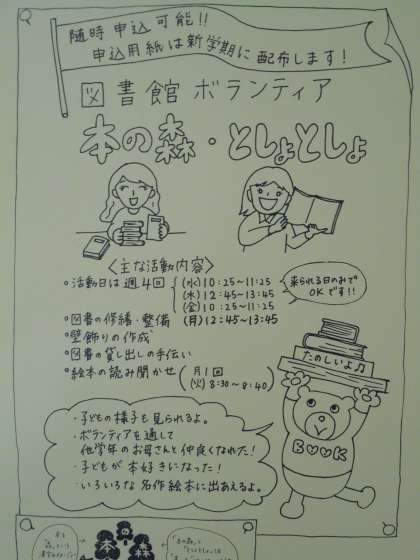 随時申込可能!!
申込用紙は新学期に配布します!
図書館ボランティア
本の森・としょとしょ
〈主な活動内容〉
・活動日は週4回
(水)10:25〜11:25
(木)12:45〜13:45
(金)10:25〜11:25
(月)12:45〜13:45
来られる日のみで
OKです!!
・図書の修繕・整備
・壁飾りの作成
・図書の貸し出しの手伝い
・絵本の読み聞かせ
(月1回
(火)8:30〜8:40)
たのしいよ♪
・子どもの様子も見られるよ。
・ボランティアを通して
他学年のお母さんと仲良くなれた!
・子どもが本好きになった!
・いろいろな名作絵本に出あえるよ。
BOOK
本の森